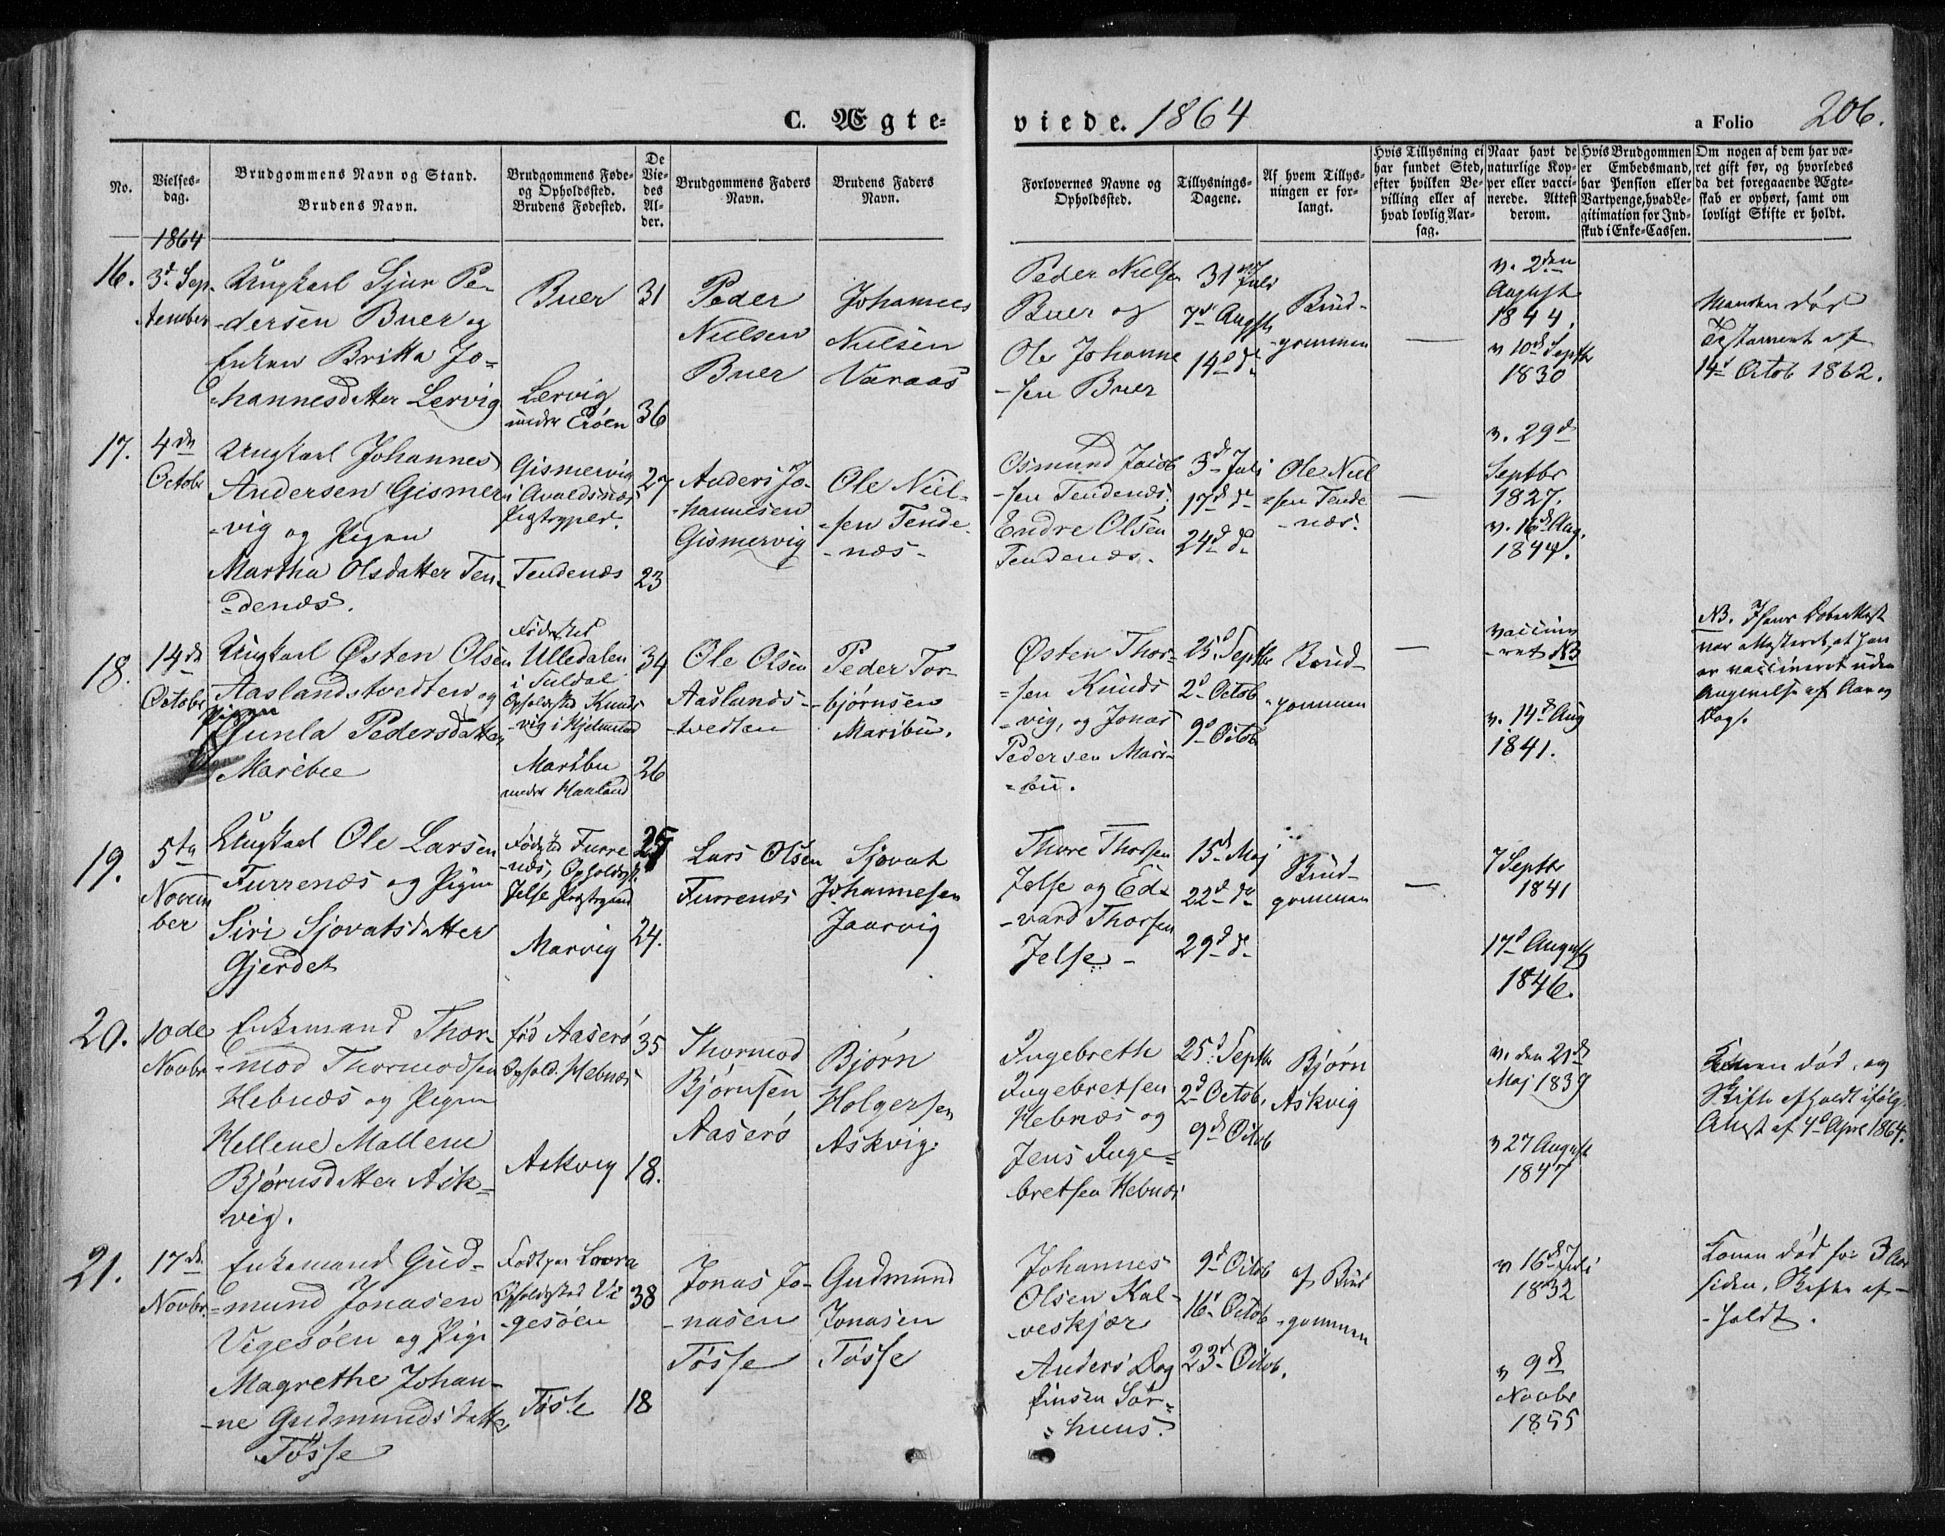 C. Ægte-
viede. 1864
a Folio 206.
No.
Vielses-
dag.
Brudgommens Navn og Stand.
Brudens Navn.
Brudgommens Føde-
og Opholdssted.
Brudens Fødested.
De
Vie-
des
Al-
der.
Brudgommens Faders
Navn.
Brudens Faders
Navn.
Forlovernes Navne og
Opholdssted.
Tillysnings-
Dagene.
Af hvem Tillys-
ningen er for-
langt.
Hvis Tillysning ei
har fundet Sted,
efter hvilken Be-
villing eller af
hvad lovlig Aar-
sag.
Naar havt de
naturlige Kop-
per eller vacci-
nerede. Attest
derom.
Hvis Brudgommen
er Embedsmand,
har Pension eller
Vartpenge, hvad Le-
gitimation for Ind-
skud i Enke-Cassen.
Om nogen af dem har væ-
ret gift før, og hvorledes
da det foregaaende Ægte-
skab er ophørt, samt om
lovligt Skifte er holdt.
1864
16.
3d Sep-
tember
Ungkarl Sjur Pe-
-dersen Buer og
Enken Britta Jo-
-hannesdatter Lervig
Buer
Lervig
under Erøen
31
36
Peder
Nielsen
Buer
Johannes
Nielsen
Varaas
Peder Nielsen
Buer og
Ole Johanne
-sen Buer
31 Juli
7d Augst
14d do
Brud-
-gommen
—
v. 2den
August
1844.
v 10d Septbr
1830
Manden død
Testament af
14d Octob 1862.
17.
4de
Octobr
Ungkarl Johannes
Andersen Gismer-
-vig og Pigen
Martha Olsdatter Ten-
-denæs.
Gismervig
i Avaldsnæs
Prgtrgjeld.
Tendenæs
27
23
Anders Jo-
-hannesen
Gismervig
Ole Niel-
-sen Tende
-næs-
Osmund Jacob
-sen Tendenæs,
Endre Olsen
Tendenæs.
3d Juli
17d do
24d do
Ole Niel
-sen Tende
-næs.
—
v. 29d
Septbr
1827.
v. 16d Aug.
1844.
18.
14de
Octobr
Ungkarl Østen Olsen
Aaslandstvedten og
Pigen
Gunla Pedersdatter
Maribu
Fødested
Ulledalen
i Suldal
Opholdssted Kunds
-vig i Hjelmeland
Maribu
under Haaland
34
26
Ole Olsen
Aaslands-
-tvedten
Peder Tor-
-bjørnsen
Maribu.
Østen Thor-
-sen Knuds
-vig, og Jonas
Pedersen Mari-
-bu.
25d Septbr
2d Octob
9d Octob
Brud-
-gommen
—
vaccine-
-ret NB
v. 14d Aug
1841.
NB. Hans Døbeattest
var attesteret, at han
er vaccineret uden
Angivelse af Aar og
Dag.
19.
5te
Novem
ber
Ungkarl Ole Larsen
Furrenæs og Pigen
Siri Sjovatsdatter
Gjerdet
Fødsted Furre
-næs, Opholdsst.
Jelse Prgtrgjeld
Marvig
24.
Lars Olsen
Furrenæs
Sjovat
Johannesen
Jaarvig
Thore Thorsen
Jelse og Ed-
-vard Thorsen
Jelse -
15d Maj
22d do
29d do
Brud-
gommen
—
7 Septbr
1841
17d August
1846.
20.
10de
Novbr
Enkemand Thor-
-mod Thormodsen
Hebnæs og Pigen
Hellene Mallene
Bjørnsdatter Ask-
-vig.
fød Aaserø
Ophold. Hebnæs
Askvig
35
18.
Thormod
Bjørnsen
Aaserø
Bjørn
Holgersen
Askvig.
Ingebreth
Ingebretsen
Hebnæs og
Jens Inge-
bretsen Hebnæs
25d Septbr
2d Octob.
9de Octob
Bjørn
Askvig
v. den 21de
Maj 1839
v 27 August
1847
Konen død, og
Skifte afholdt ifølg.
Attest af 4d Apr 1864.
21.
17de
Novbr.
Enkemand Gud-
-mund Jonasen
Vigesøen og Pige
Magrethe Johan-
-ne Gudmundsdatter
Tøsse
Født paa
Opholdssted Vi
gesøen
Tøsse
38
18
Jonas Jo-
-nasen
Tøsse
Gudmund
Jonasen
Tøsse
Johannes
Olsen Kal-
-veskjær
Anders Dag
finsen Sør-
-huus.
9d Octob
16d Octob
23d Octob.
af Brud
-gommen
v 16de Juli
1832
v 9de
Novbr
1855
Konen død for 3 Aar
siden. Skifte af-
-holdt.